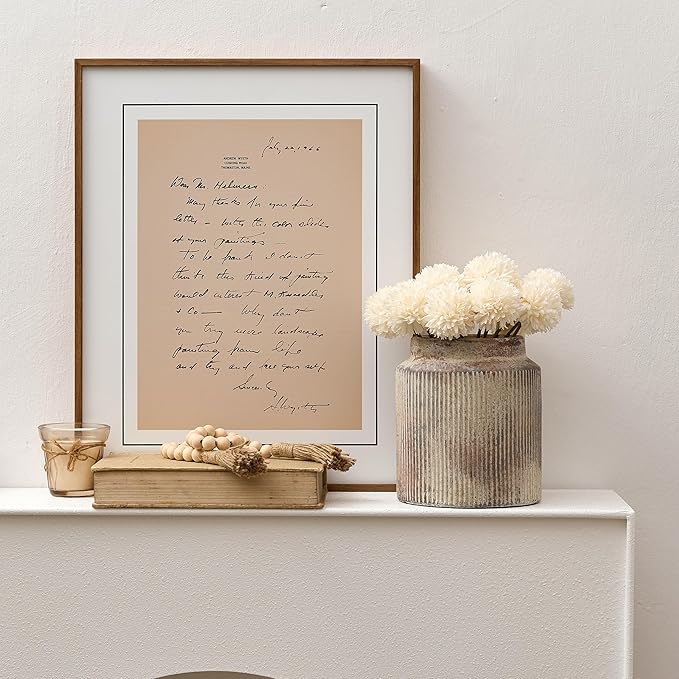 July 22, 1966
ANDREW WYETH
CUSHING ROAD
THOMASTON, MAINE
Dear Mr.
Many thanks for your fine
letter — with the color slides
of your paintings —
To be frank I don't
think this kind of painting
would interest M. Knoedler
& Co — Why don't
you try never landscapes
painting from life
and try and see your self
Sincerely
A Wyeth